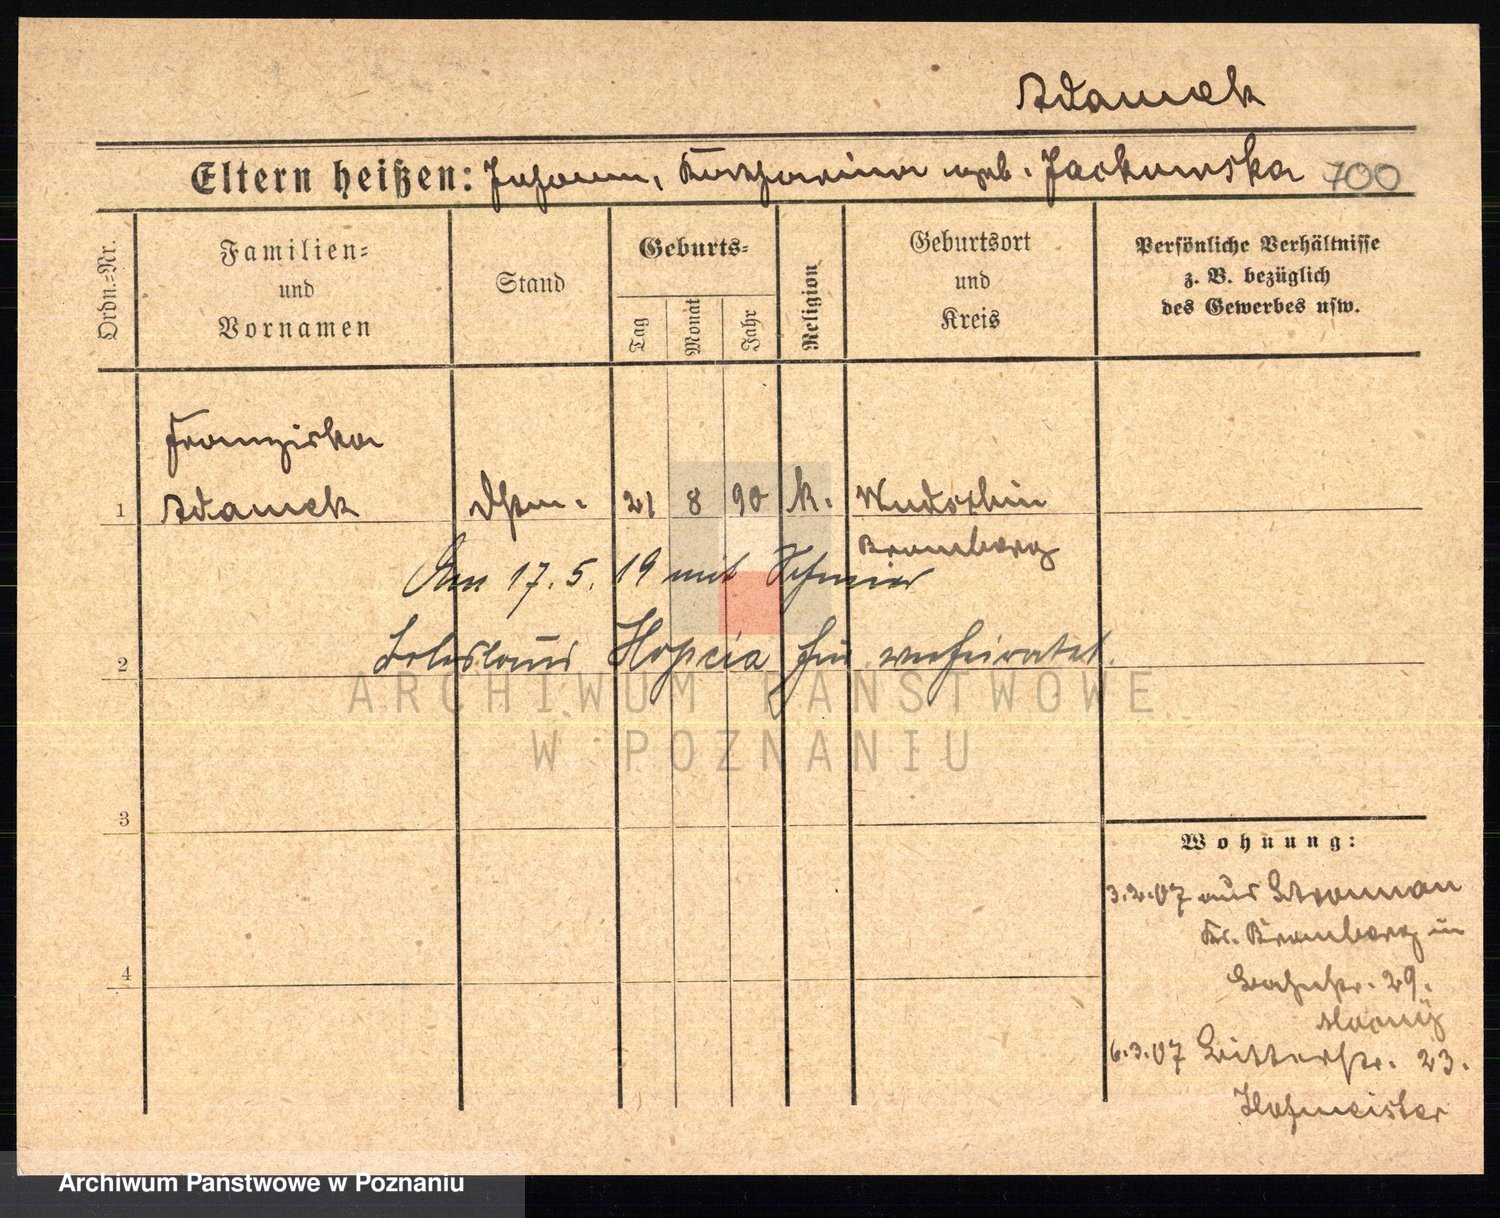 Adamek
Eltern heißen: Johann, Katharina geb. Jackowska 700
Ordn.=Nr.
Familien= und Vornamen
Stand
Geburts=
Tag
Monat
Jahr
Religion
Geburtsort und Kreis
Persönliche Verhältnisse
z. B. bezüglich
des Gewerbes usw.
Franziska
1 Adamek Dstm. 21 8 90 k.
Bromberg
Am 17.5.19 mit
2 Boleslaus hier verheiratet.
3
Wohnung:
3.2.07 aus
Kr. Bromberg in
4
Bahnstr. 29.
6.3.07 Ritterstr. 23.
Hofmeister
ARCHIWUM PAŃSTWOWE
W POZNANIU
Archiwum Państwowe w Poznaniu